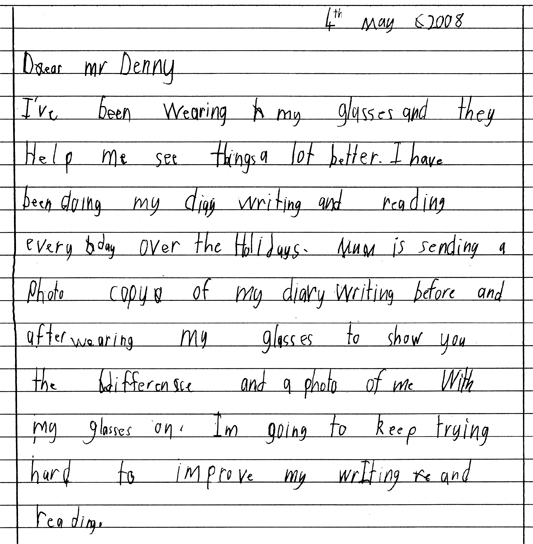 4th May 2008
Dear mr Denny
I've been wearing my glasses and they
Help me see things a lot better. I have
been doing my diary writing and reading
every day over the Holidays. Mum is sending a
Photo copy of my diary writing before and
after wearing my glasses to show you
the difference and a photo of me With
my glasses on. Im going to keep trying
hard to improve my wrIting and
reading.